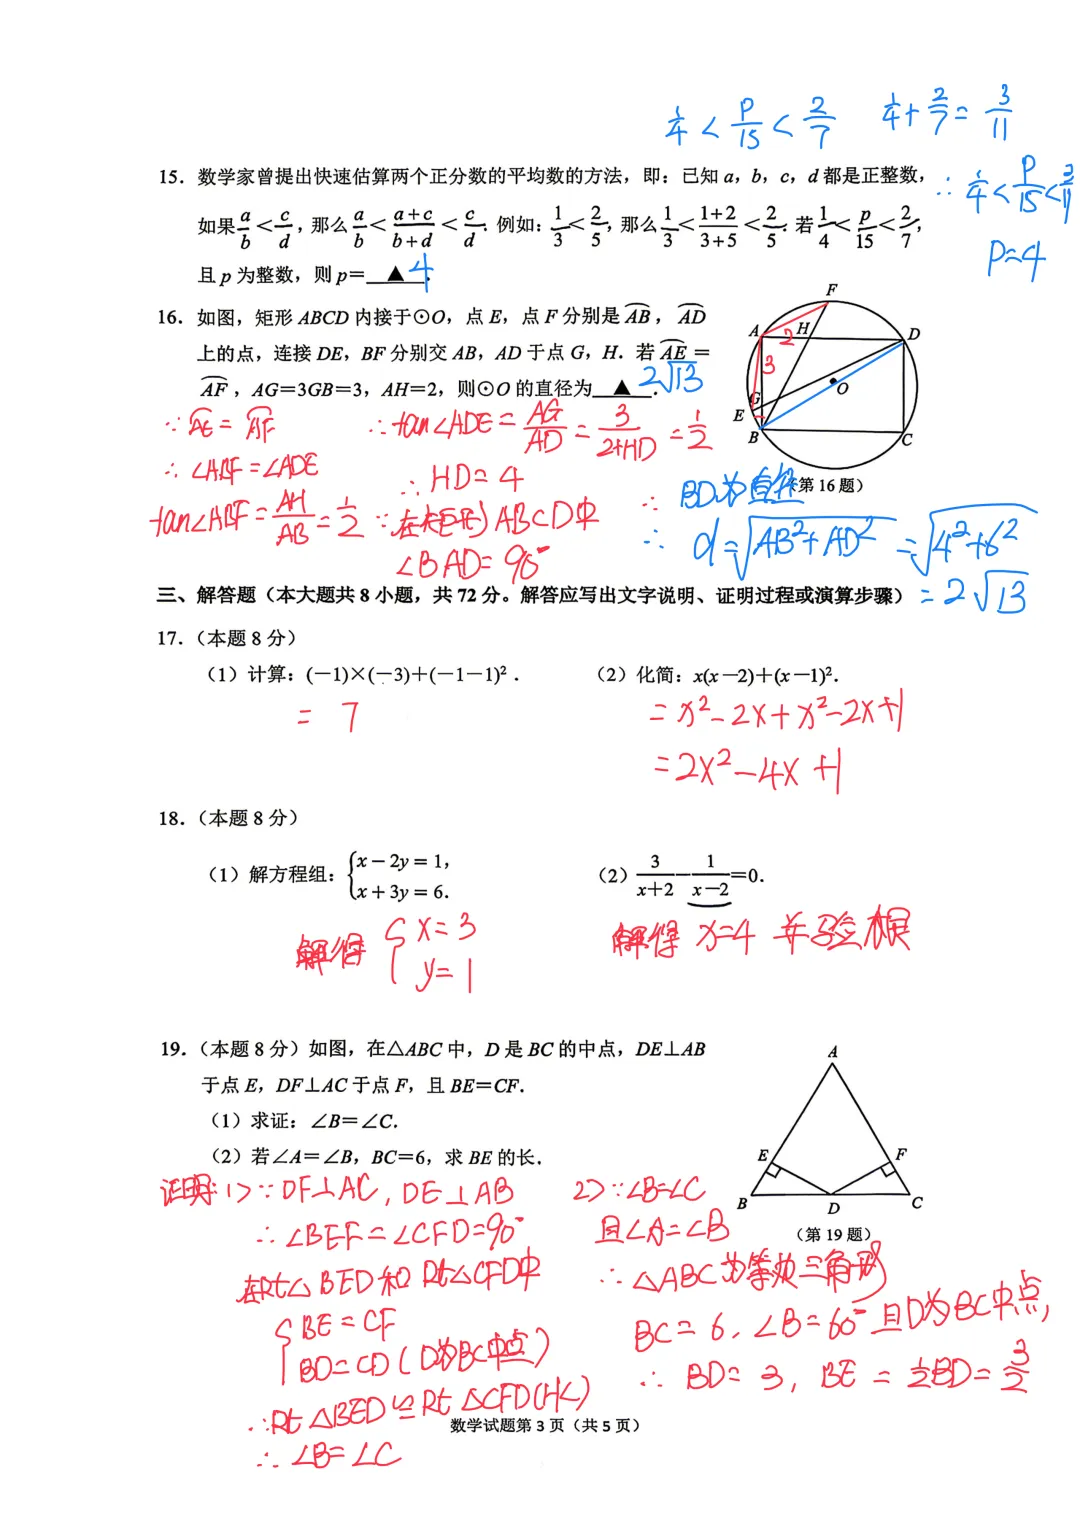 1/4 < p/15 < 2/7  1/4 + 2/7 = 3/11
15. 数学家曾提出快速估算两个正分数的平均数的方法，即：已知 a，b，c，d 都是正整数，
∴ 1/4 < p/15 < 3/11
如果 a/b < c/d，那么 a/b < (a+c)/(b+d) < c/d. 例如：1/3 < 2/5，那么 1/3 < (1+2)/(3+5) < 2/5. 若 1/4 < p/15 < 2/7，
p=4
且 p 为整数，则 p= ▲ . 4
16. 如图，矩形 ABCD 内接于⊙O，点 E，点 F 分别是 AB，AD
上的点，连接 DE，BF 分别交 AB，AD 于点 G，H. 若 AE =
AF，AG=3GB=3，AH=2，则⊙O 的直径为 ▲ . 2√13
F
A H 2 D
3
O
G
E
B C
（第 16 题）
∵ AE = AF
∴ ∠ABF = ∠ADE
tan∠ABF = AH/AB = 1/2
∴ tan∠ADE = AG/AD = 3/(2+HD) = 1/2
∴ HD = 4
∵ 在矩形 ABCD中
∠BAD = 90°
∴ BD为直径
∴ d = √(AB²+AD²) = √(4²+6²)
= 2√13
三、解答题（本大题共 8 小题，共 72 分。解答应写出文字说明、证明过程或演算步骤）
17.（本题 8 分）
（1）计算：(−1)×(−3)+(−1−1)².
（2）化简：x(x−2)+(x−1)².
= 7
= x²−2x+x²−2x+1
= 2x²−4x+1
18.（本题 8 分）
（1）解方程组：{x−2y=1， x+3y=6.
（2）3/(x+2) − 1/(x−2) =0.
解得 {x=3 y=1
解得 x=4 并验根
19.（本题 8 分）如图，在△ABC 中，D 是 BC 的中点，DE⊥AB
于点 E，DF⊥AC 于点 F，且 BE=CF.
（1）求证：∠B=∠C.
（2）若∠A=∠B，BC=6，求 BE 的长.
A
E F
B D C
（第 19 题）
证明：1) ∵ DF⊥AC, DE⊥AB
∴ ∠BEF = ∠CFD = 90°
在Rt△BED和 Rt△CFD中
{BE = CF
BD = CD (D为BC中点)
∴ Rt△BED ≌ Rt△CFD(HL)
∴ ∠B = ∠C
2) ∵ ∠B=∠C
且∠A=∠B
∴ △ABC为等边三角形
BC = 6, ∠B = 60° 且D为BC中点,
∴ BD = 3, BE = 1/2 BD = 3/2
数学试题第 3 页（共 5 页）